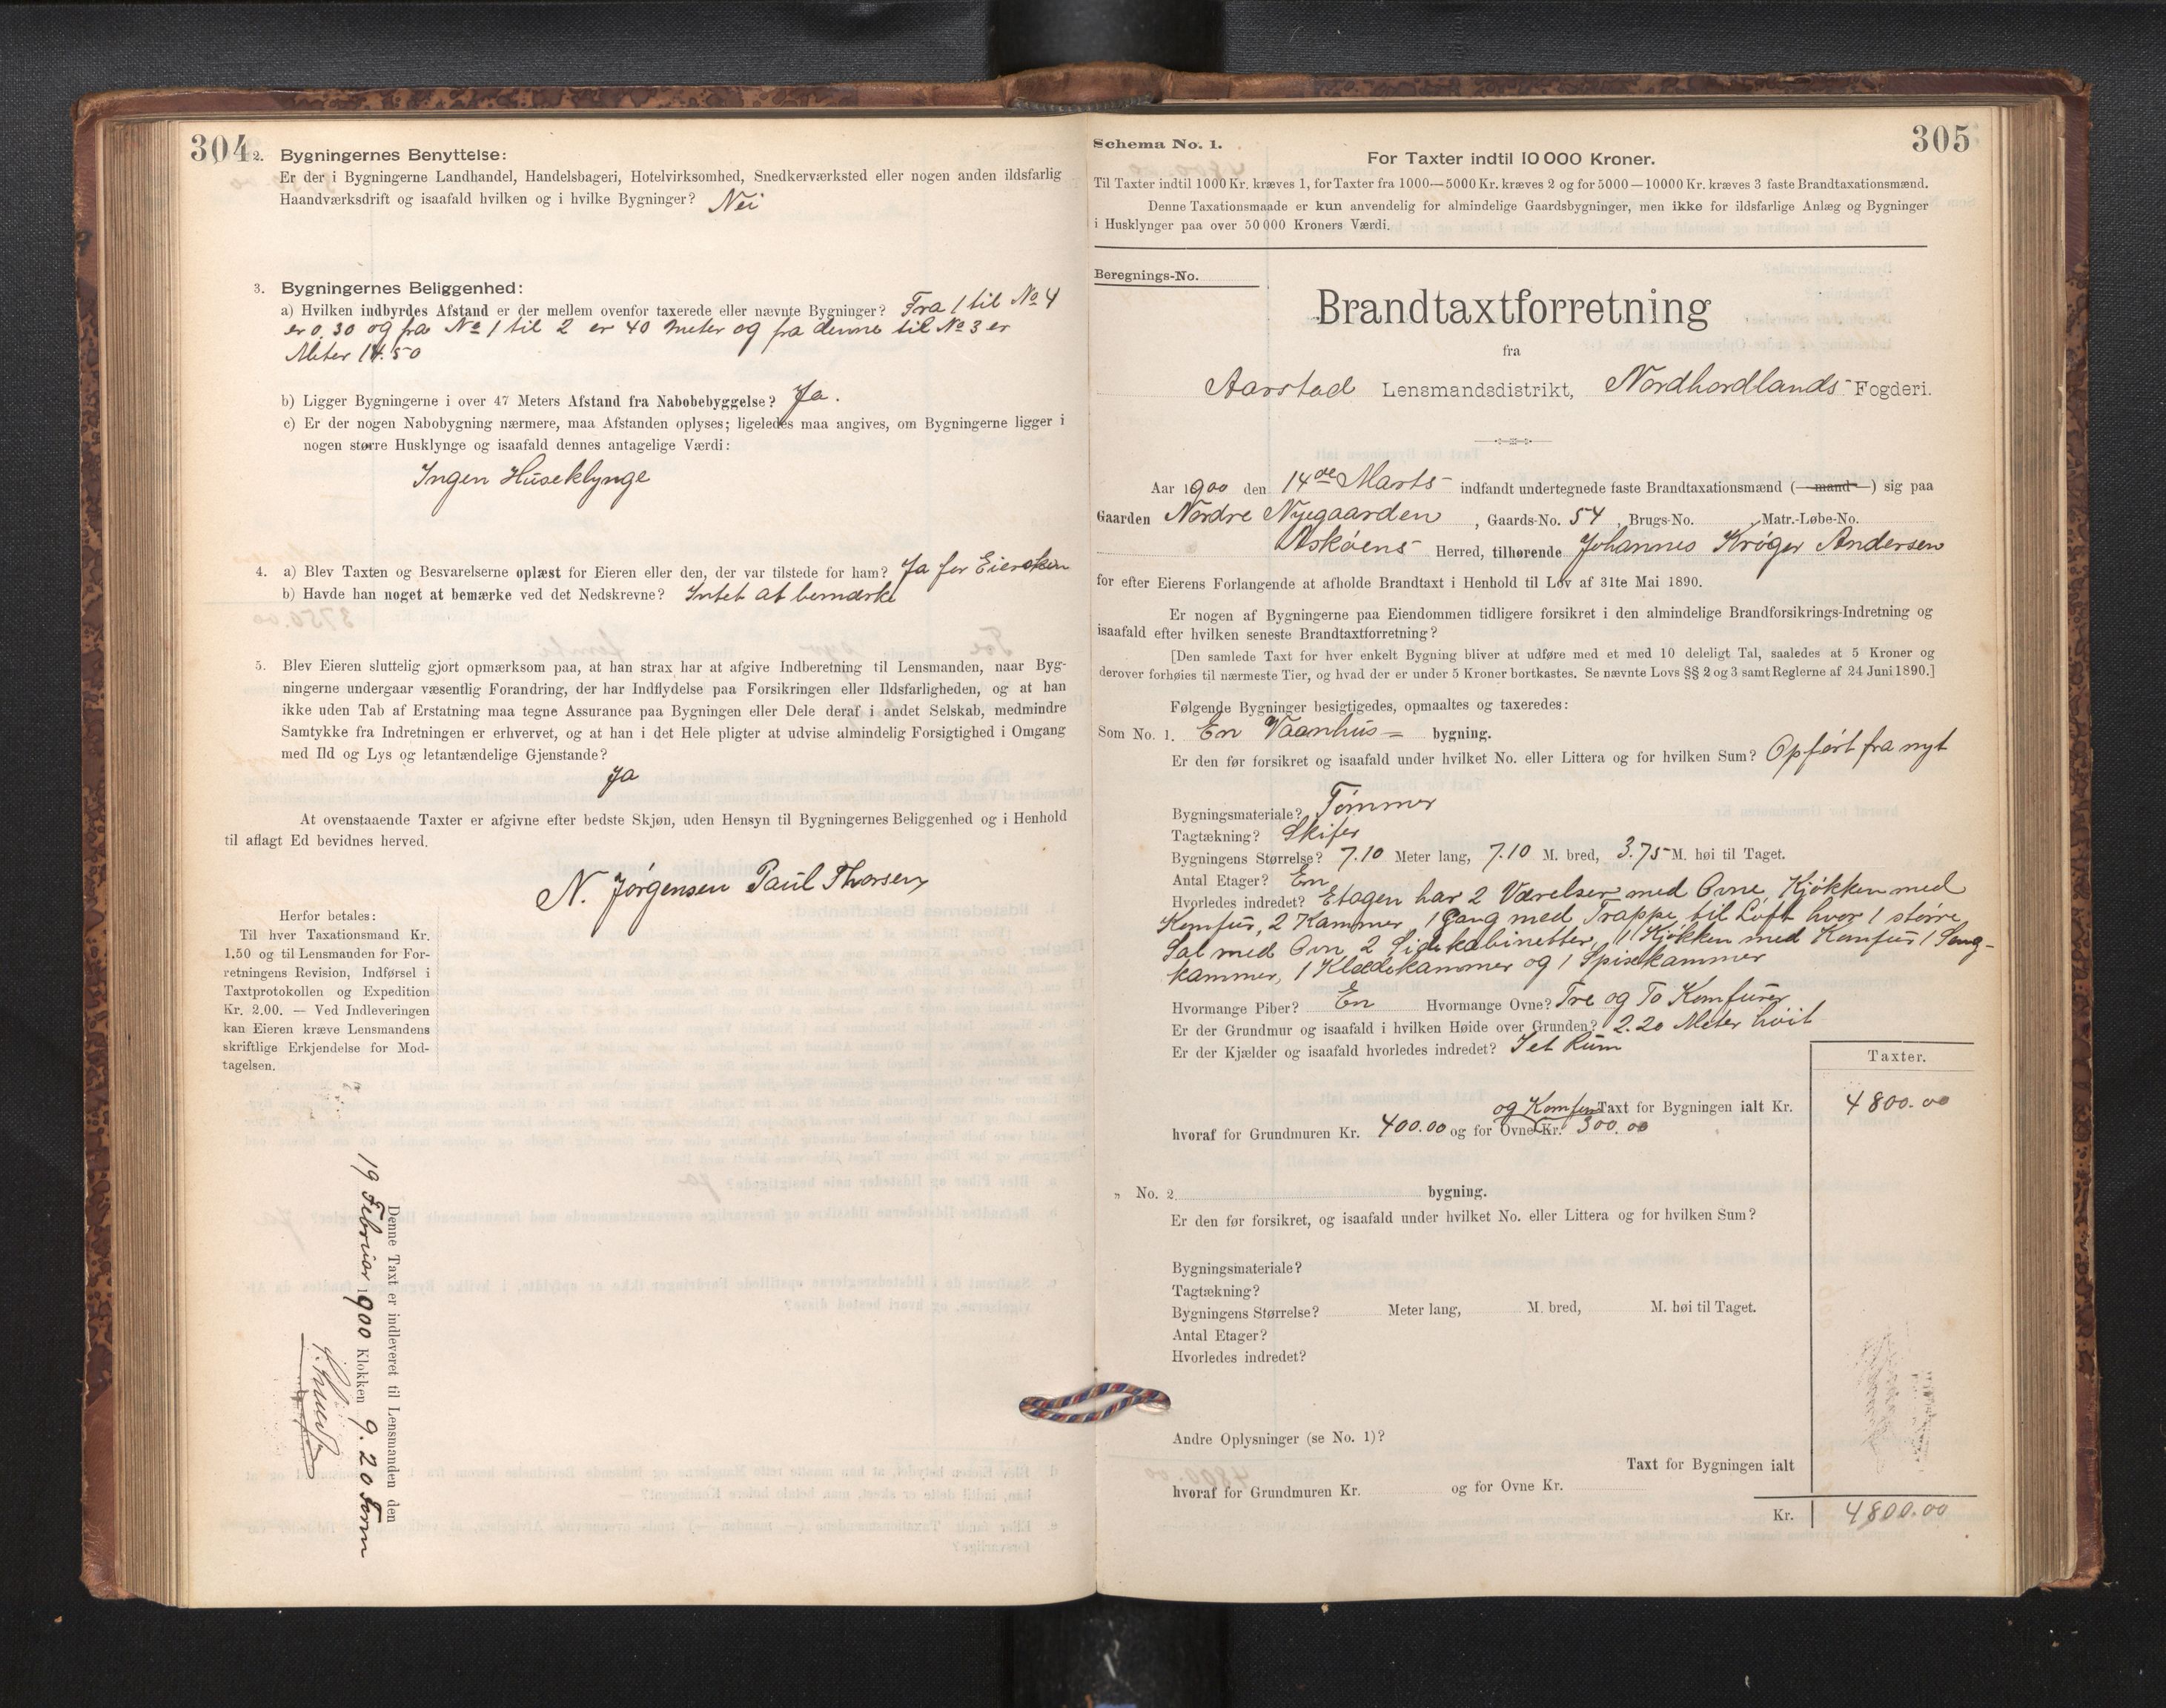 304
2. Bygningernes Benyttelse:
Er der i Bygningerne Landhandel, Handelsbageri, Hotelvirksomhed, Snedkerværksted eller nogen anden ildsfarlig
Haandværksdrift og isaafald hvilken og i hvilke Bygninger? Nei
3. Bygningernes Beliggenhed:
a) Hvilken indbyrdes Afstand er der mellem ovenfor taxerede eller nævnte Bygninger? Fra 1 til No 4
er 0,30 og fra No 1 til 2 er 40 Meter og fra denne til No 3 er
Meter 14.50
b) Ligger Bygningerne i over 47 Meters Afstand fra Nabobebyggelse? Ja.
c) Er der nogen Nabobygning nærmere, maa Afstanden oplyses; ligeledes maa angives, om Bygningerne ligger i
nogen større Husklynge og isaafald dennes antagelige Værdi:
Ingen Huseklynge
4. a) Blev Taxten og Besvarelserne oplæst for Eieren eller den, der var tilstede for ham? Ja for Eiersken
b) Havde han noget at bemærke ved det Nedskrevne? Intet at bemærke
5. Blev Eieren sluttelig gjort opmærksom paa, at han strax har at afgive Indberetning til Lensmanden, naar Byg-
ningerne undergaar væsentlig Forandring, der har Indflydelse paa Forsikringen eller Ildsfarligheden, og at han
ikke uden Tab af Erstatning maa tegne Assurance paa Bygningen eller Dele deraf i andet Selskab, medmindre
Samtykke fra Indretningen er erhvervet, og at han i det Hele pligter at udvise almindelig Forsigtighed i Omgang
med Ild og Lys og letantændelige Gjenstande?
Ja
At ovenstaaende Taxter er afgivne efter bedste Skjøn, uden Hensyn til Bygningernes Beliggenhed og i Henhold
til aflagt Ed bevidnes herved.
N. Jørgensen Paul Thorsen
Herfor betales:
Til hver Taxationsmand Kr.
1,50 og til Lensmanden for For-
retningens Revision, Indførsel i
Taxtprotokollen og Expedition
Kr. 2,00. — Ved Indleveringen
kan Eieren kræve Lensmandens
skriftlige Erkjendelse for Mod-
tagelsen.
Denne Taxt er indleveret til Lensmanden den
19 Februar 1900 Klokken 9.20 Form
305
Schema No. 1.
For Taxter indtil 10 000 Kroner.
Til Taxter indtil 1000 Kr. kræves 1, for Taxter fra 1000—5000 Kr. kræves 2 og for 5000—10000 Kr. kræves 3 faste Brandtaxationsmænd.
Denne Taxationsmaade er kun anvendelig for almindelige Gaardsbygninger, men ikke for ildsfarlige Anlæg og Bygninger
i Husklynger paa over 50 000 Kroners Værdi.
Beregnings-No.
Brandtaxtforretning
fra
Aarstad Lensmandsdistrikt, Nordhordlands Fogderi.
Aar 1900 den 14de Marts indfandt undertegnede faste Brandtaxationsmænd (—mand—) sig paa
Gaarden Nordre Nyegaarden, Gaards-No. 54, Brugs-No. , Matr.-Løbe-No.
Askøens Herred, tilhørende Johannes Krøger Andersen
for efter Eierens Forlangende at afholde Brandtaxt i Henhold til Lov af 31te Mai 1890.
Er nogen af Bygningerne paa Eiendommen tidligere forsikret i den almindelige Brandforsikrings-Indretning og
isaafald efter hvilken seneste Brandtaxtforretning?
[Den samlede Taxt for hver enkelt Bygning bliver at udføre med et med 10 deleligt Tal, saaledes at 5 Kroner og
derover forhøies til nærmeste Tier, og hvad der er under 5 Kroner bortkastes. Se nævnte Lovs §§ 2 og 3 samt Reglerne af 24 Juni 1890.]
Følgende Bygninger besigtigedes, opmaaltes og taxeredes:
Som No. 1. En Vaanhus= bygning.
Er den før forsikret og isaafald under hvilket No. eller Littera og for hvilken Sum? Opført fra nyt
Bygningsmateriale? Tømmer
Tagtækning? Skifer
Bygningens Størrelse? 7.10 Meter lang, 7.10 M. bred, 3.75 M. høi til Taget.
Antal Etager? En
Hvorledes indredet? Etagen har 2 Værelser med Ovne, Kjøkken med
Komfur, 2 Kammer, 1 Gang med Trappe til Loft hvor 1 større
Sal med Ovn 2 Sidekabinetter, 1 Kjøkken med Komfur 1 Seng-
kammer, 1 Klædekammer og 1 Spisekammer
Hvormange Piber? En Hvormange Ovne? Tre og To Komfurer
Er der Grundmur og isaafald i hvilken Høide over Grunden? 2.20 Meter høit
Er der Kjælder og isaafald hvorledes indredet? I et Rum
Taxter.
og Komfur Taxt for Bygningen ialt Kr. 4800.00
hvoraf for Grundmuren Kr. 400.00 og for Ovne Kr. 300.00
„ No. 2 bygning.
Er den før forsikret, og isaafald under hvilket No. eller Littera og for hvilken Sum?
Bygningsmateriale?
Tagtækning?
Bygningens Størrelse? Meter lang, M. bred, M. høi til Taget.
Antal Etager?
Hvorledes indredet?
Andre Oplysninger (se No. 1)?
Taxt for Bygningen ialt
hvoraf for Grundmuren Kr. og for Ovne Kr.
Kr. 4800.00